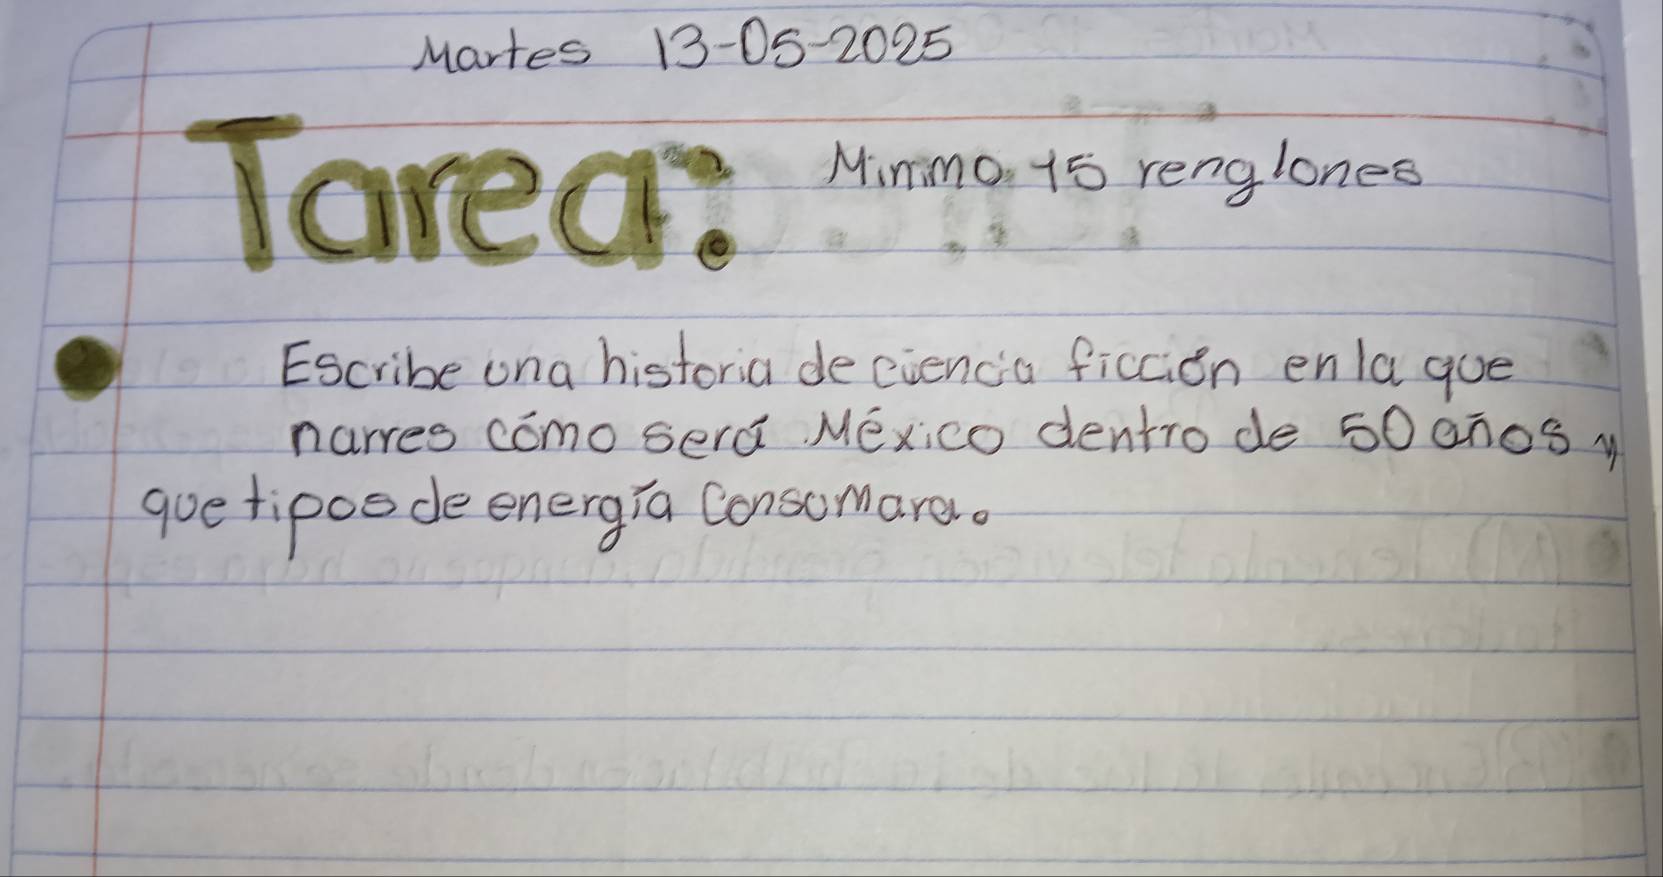 Martes 13-05-2025
Tarea: Minimo 15 renglones
Escribe una historia de ciencia ficción en la que
narres cómo será México dentro de 50 años y
que tipos de energía consumara.